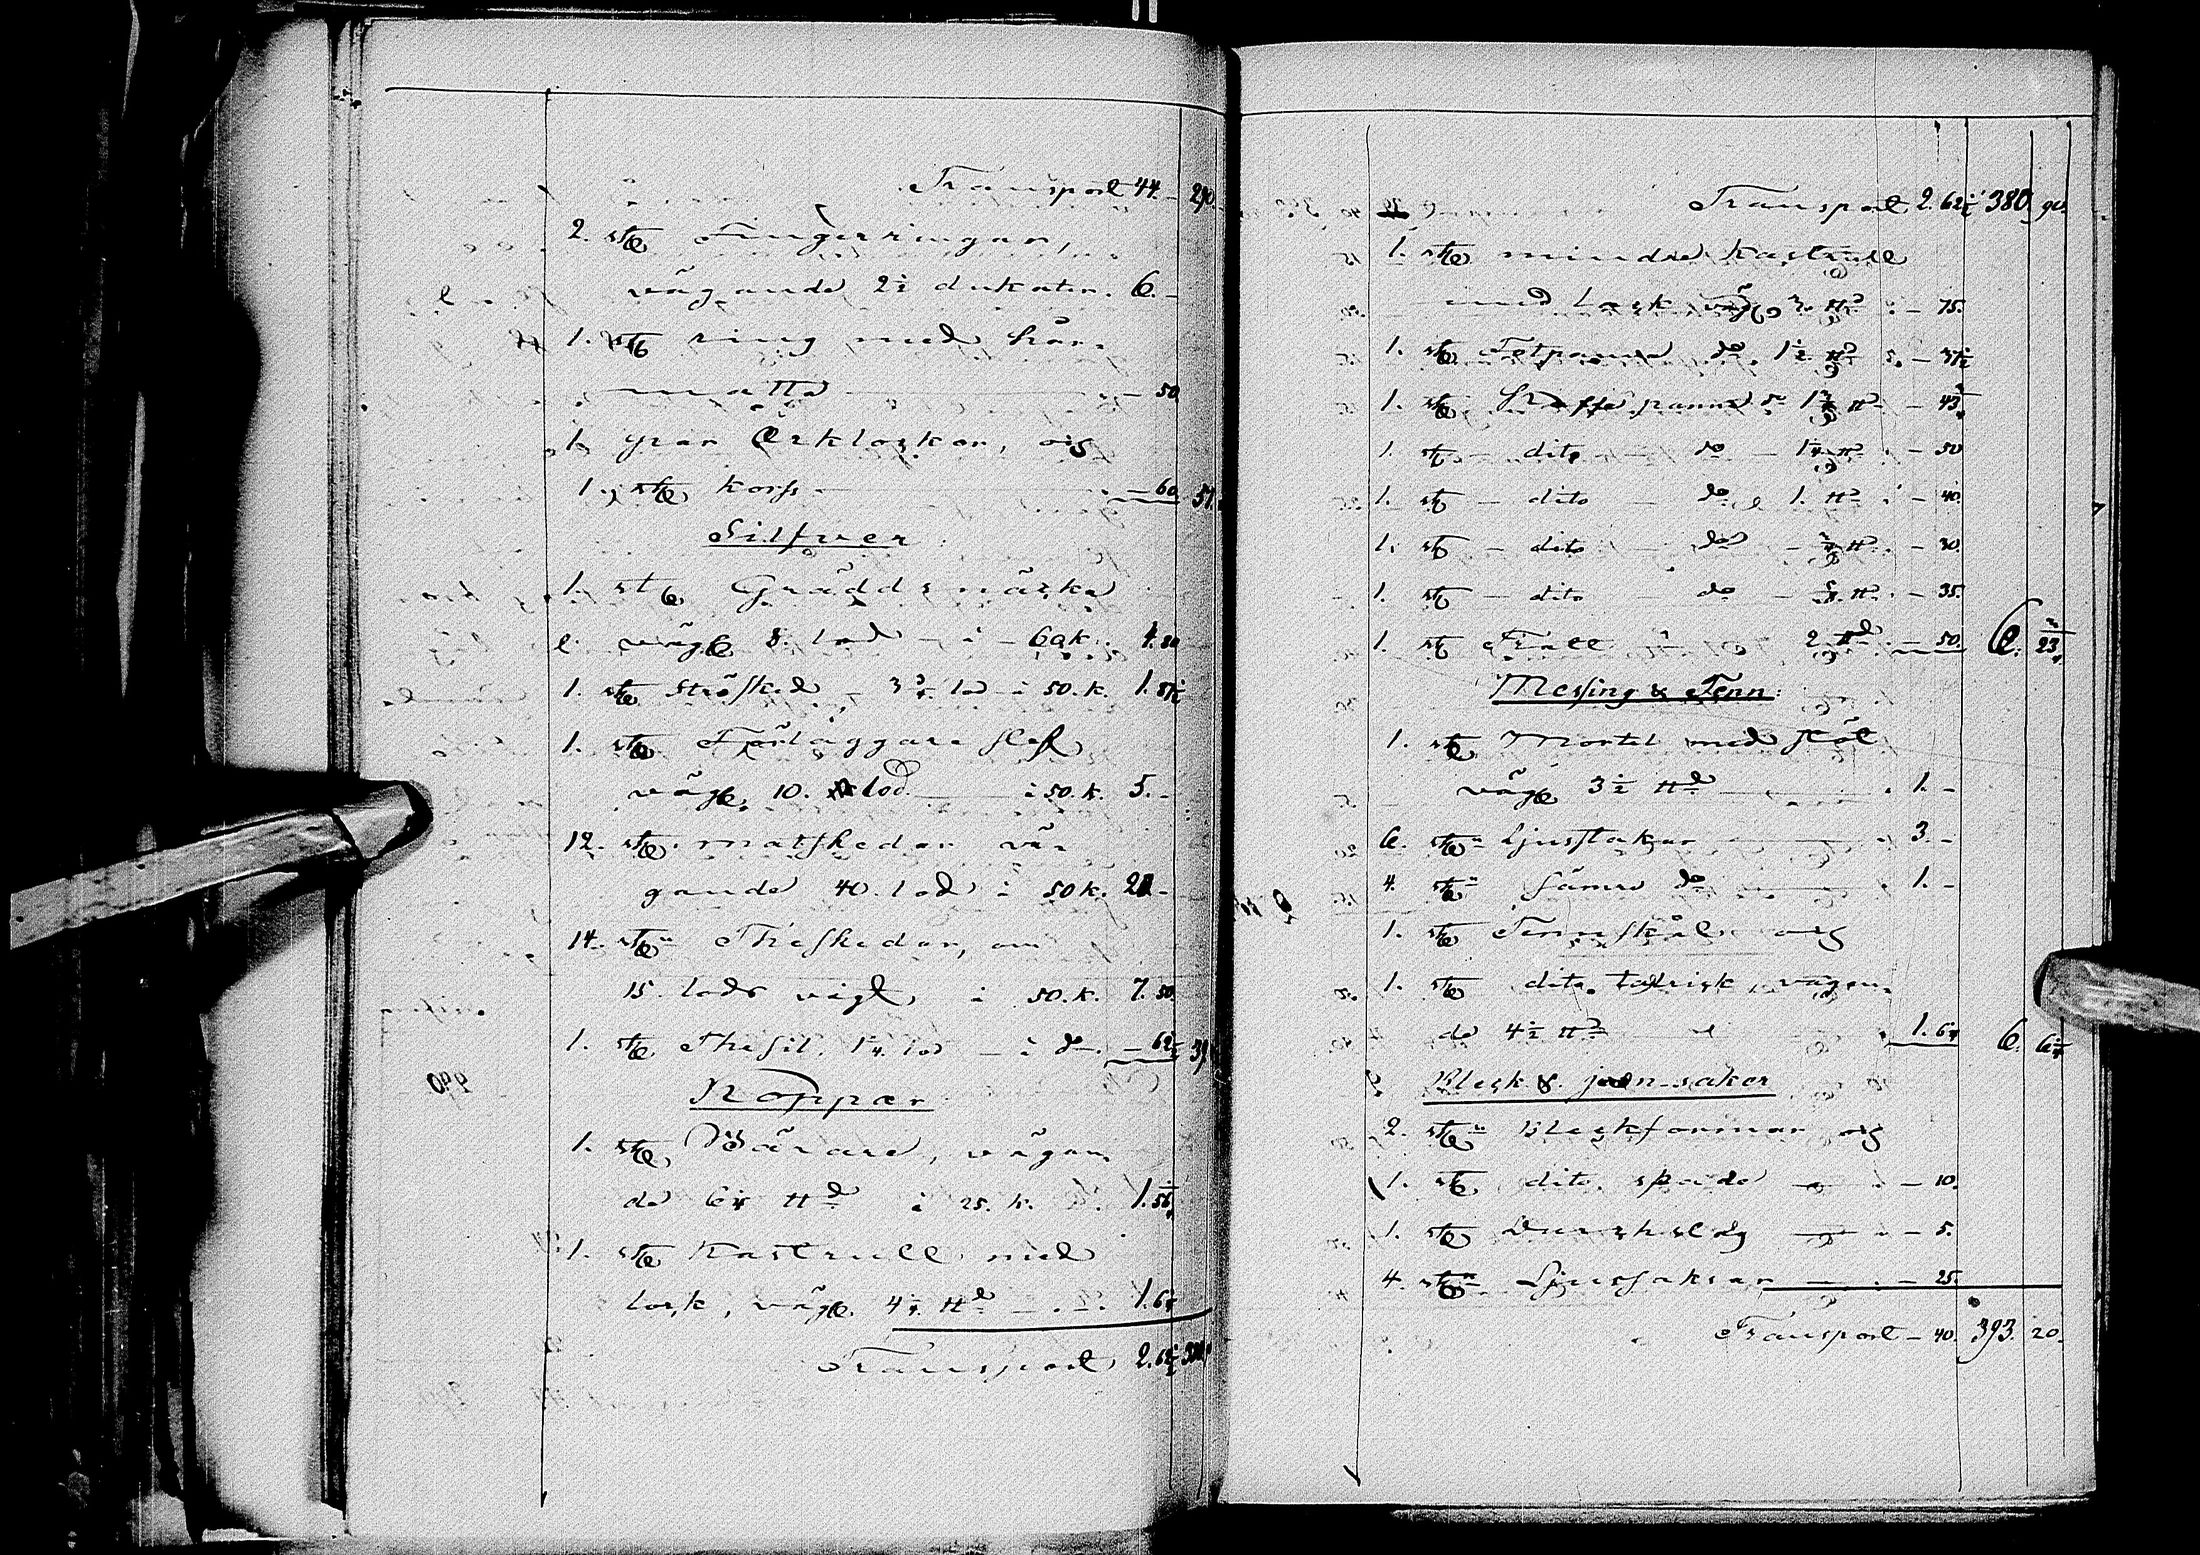 Transport 44. – 290.
2. stk Fingerringar,
vägande 2½ dukater. 6. –
1. stk ring med hår-
matta – 50
1. par Örklockor, och
1. stk korss – 60 51.
Silfwer
1. stk Gräddsnäcka
vägde 8. lod – à – 60 k. 4.80
1. stk Ströfsked – 3¾ lod à 50. k. 1.87½
1. stk Förläggare slef
vägde 10. lod. à 50. k. 5. –
12. stk matskedar vä-
gande 40. lod à 50 k. 20 –
14. stk Theskedar, om
15. lods vigt, à 50. k. 7.50
1. stk Thesil. 1¼ lod – à do – 62½ 39
Koppar
1. stk Bärare, vägan-
de 6¼ ℔ à 25. k. 1.56¼
1. stk Kastrull med
lock, vägde 4¼ ℔ – 1.6¼
Transport 2.62½ 380
Transport 2.62½ 380. 90.
1. stk mindre Kastrull
med lock väg. 3. ℔ – 75.
1. stk Tetpanna do. 1½ ℔ – 37½
1. stk Kaffepanna do 1¾ ℔ – 43¾
1. stk – dito – do – 1¼ ℔ – 50
1. stk – dito – do 1. ℔ – 40.
1. stk – dito – do – ¾ ℔ – 30.
1. stk – dito – do – ⅝ ℔ – 35.
1. stk Fat 2 ℔ – 50. 6. 23¾
Messing & Tenn:
1. stk Mortel med stöt
vägde 3½ ℔ 1. –
6. stk Ljusstakar 3. –
4. stk sämre do 1. –
1. stk Tennskål och
1. stk dito tallrick vägan-
de 4½ ℔ 1.6¼ 6. 6¼
Bleck & jern-saker
2. stk Bleckformar och
1. stk dito. spade – 10.
1. stk Durchslag – 5.
4. stk Ljussaksar – 25.
Transport – 40. 393. 20.